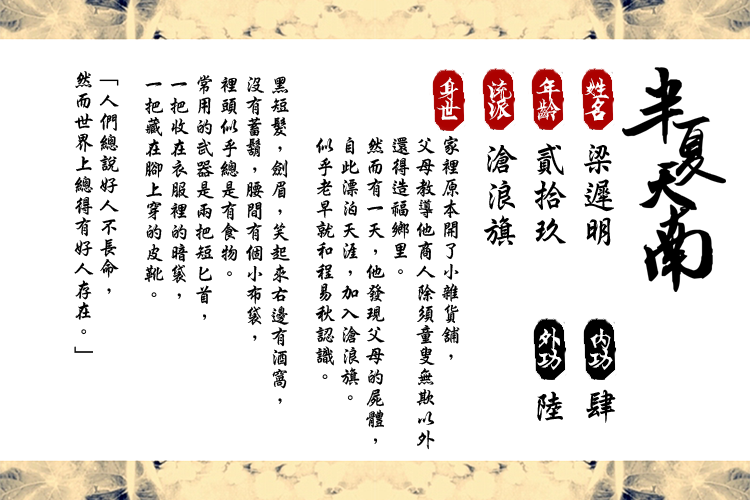 半夏天南
姓名 梁遲明
內功 肆
年齡 貳拾玖
外功 陸
流派 滄浪旗
身世
家裡原本開了小雜貨舖，
父母教導他商人除須童叟無欺以外
還得造福鄉里。
然而有一天，他發現父母的屍體，
自此漂泊天涯，加入滄浪旗。
似乎老早就和程易秋認識。
黑短髮，劍眉，笑起來右邊有酒窩，
沒有蓄鬍，腰間有個小布袋，
裡頭似乎總是有食物。
常用的武器是兩把短匕首，
一把收在衣服裡的暗袋，
一把藏在腳上穿的皮靴。
「人們總說好人不長命，
然而世界上總得有好人存在。」